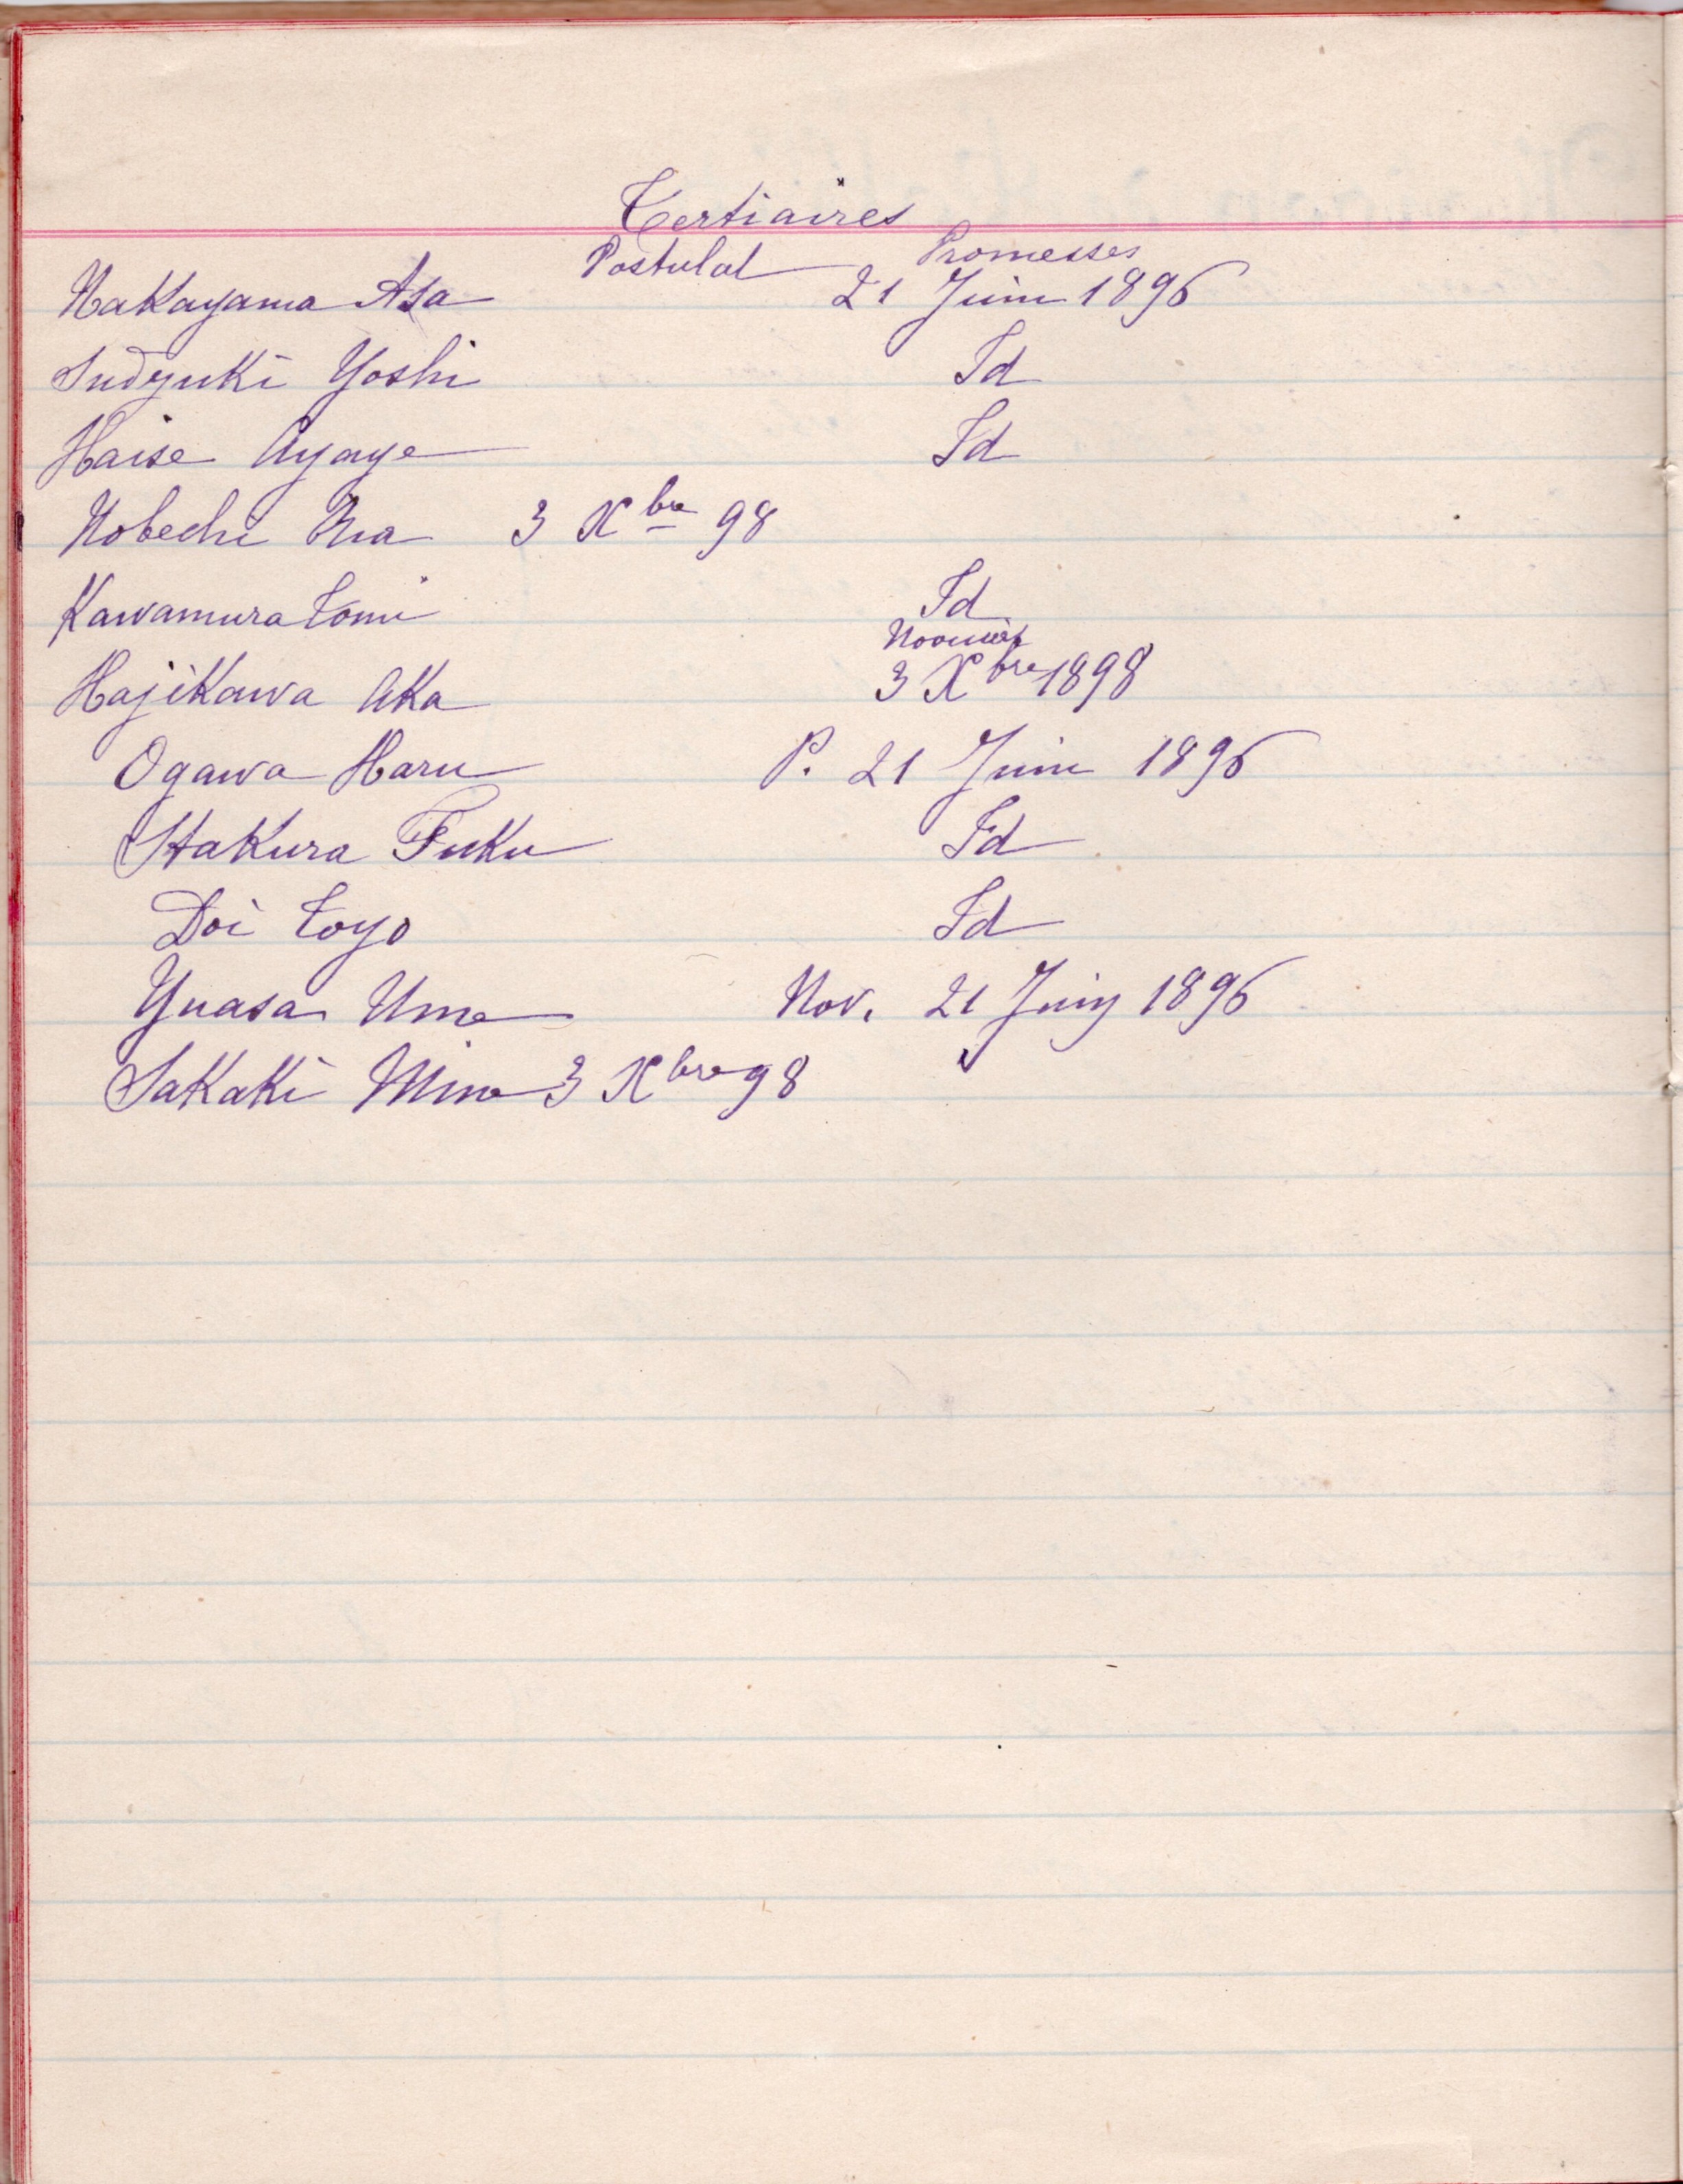 Tertiaires
Postulat Promesses
Nakayama Asa 21 Juin 1896
Sudzuki Yoshi Id
Haise Ayaye Id
Nobechi 3 Xbre 98
Kawamura Tomi Id
Hajikawa Aka 3 Xbre 1898
Ogawa Haru P. 21 Juin 1896
Itakura Fuku Id
Doi Toyo Id
Yuasa Ume Nov. 21 Juin 1896
Sakaki Mine 3 Xbre 98